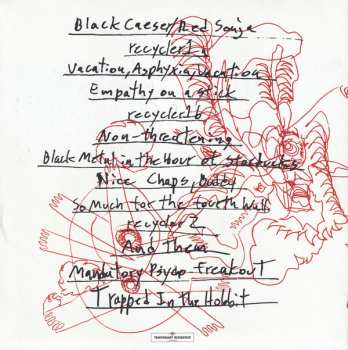 Black Caeser/Red Sonja
recycler1a
Vacation, Asphyxia, Vacation
Empathy on a stick
recycler1b
Non-threatening
Black Metal in the Hour of Starbucks
Nice Chaps, Buddy
So Much for the fourth Wall
recycler2
And Them
Mandatory Psycho Freakout
Trapped In the Hobbit
TEMPORARY RESIDENCE